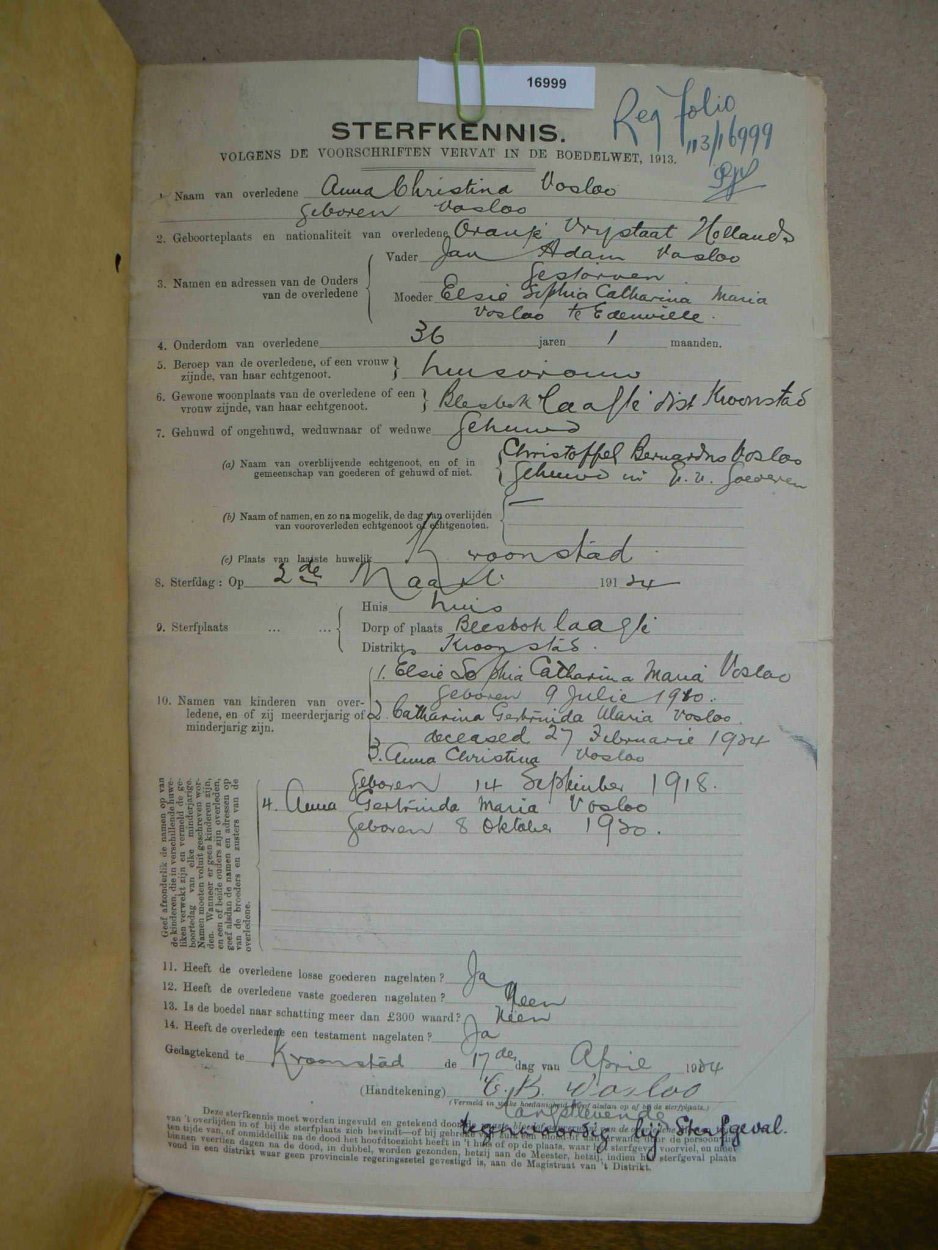 16999
Reg Folio
113/16999
STERFKENNIS.
VOLGENS DE VOORSCHRIFTEN VERVAT IN DE BOEDELWET, 1913.
1. Naam van overledene Anna Christina Vosloo
geboren Vosloo
2. Geboorteplaats en nationaliteit van overledene Oranje Vrijstaat Hollands
3. Namen en adressen van de Ouders van de overledene
Vader Jan Adam Vosloo
Gestorven
Moeder Elsie Sophia Catharina Maria
Vosloo te Edenville.
4. Onderdom van overledene 36 jaren 1 maanden.
5. Beroep van de overledene, of een vrouw
zijnde, van haar echtgenoot. huisvrouw
6. Gewone woonplaats van de overledene of een
vrouw zijnde, van haar echtgenoot. Blesbok laagte dist Kroonstad
7. Gehuwd of ongehuwd, weduwnaar of weduwe Gehuwd
(a) Naam van overblijvende echtgenoot, en of in
gemeenschap van goederen of gehuwd of niet.
Christoffel Bernardus Vosloo
gehuwd in G. v. Goederen
(b) Naam of namen, en zo na mogelik, de dag van overlijden
van vooroverleden echtgenoot of echtgenoten.
(c) Plaats van laatste huwelik Kroonstad
8. Sterfdag: Op 2de Maart 191 24
9. Sterfplaats ... ...
Huis huis
Dorp of plaats Blesbok laagte
Distrikt Kroonstad.
10. Namen van kinderen van over-
ledene, en of zij meerderjarig of
minderjarig zijn.
1. Elsie Sophia Catharina Maria Vosloo
geboren 9 Julie 1910.
2. Catharina Gertruida Maria Vosloo.
deceased 27 Februarie 1924
3. Anna Christina Vosloo
geboren 14 September 1918.
4. Anna Gertruida Maria Vosloo
Geboren 8 Oktober 1920.
Geef afzonderlik de namen op van
de kinderen, die in verschillende huwe-
liken verwekt zijn en vermeld de ge-
boortedag van elke minderjarige.
Namen moeten voluit geschreven wor-
den. Wanneer er geen kinderen zijn,
en een of beide ouders zijn overleden,
geef alsdan de namen en adressen op
van de broeders en zusters van de
overledene.
11. Heeft de overledene losse goederen nagelaten? Ja
12. Heeft de overledene vaste goederen nagelaten? Neen
13. Is de boedel naar schatting meer dan £300 waard? Neen
14. Heeft de overledene een testament nagelaten? Ja
Gedagtekend te Kroonstad de 17de dag van April 1924
(Handtekening) C. B. Vosloo
Langstlevende
tegenwoordig bij Sterfgeval.
Deze sterfkennis moet worden ingevuld en getekend door
van 't overlijden in of bij de sterfplaats zich bevindt—of bij gebreke
ten tijde van, of onmiddellik na de dood het hoofdtoezicht heeft in 't huis of op de plaats, waar het sterfgeval voorviel, en moet
binnen veertien dagen na de dood, in dubbel, worden gezonden, hetzij aan de Meester, hetzij, indien het sterfgeval plaats
vond in een distrikt waar geen provinciale regeringszetel gevestigd is, aan de Magistraat van 't Distrikt.